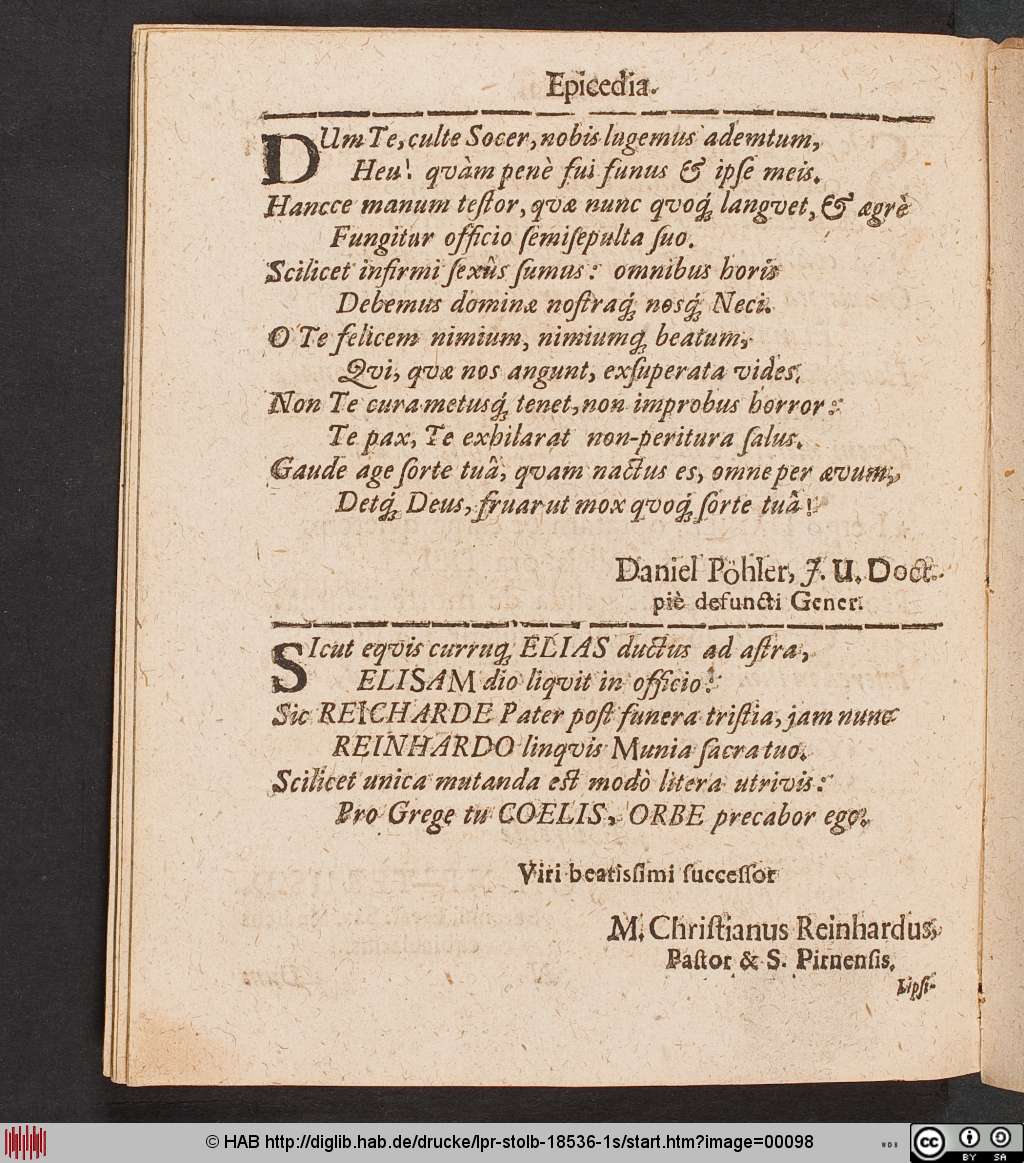 Epicedia.
DUm Te, culte Socer, nobis lugemus ademtum,
Heu! qvàm penè fui funus & ipſe meis.
Hancce manum teſtor, qvæ nunc qvoq́; langvet, & ægrè
Fungitur officio ſemiſepulta ſuo.
Scilicet infirmi ſexûs ſumus: omnibus horis
Debemus dominæ noſtraq́; nosq́; Neci.
O Te felicem nimium, nimiumq́; beatum,
Qvi, qvæ nos angunt, exſuperata vides.
Non Te cura metusq́; tenet, non improbus horror:
Te pax, Te exhilarat non-peritura ſalus.
Gaude age ſorte tuâ, qvam nactus es, omne per ævum,
Detq́; Deus, fruar ut mox qvoq́; ſorte tuâ!
Daniel Pöhler, J. U. Doct.
piè defuncti Gener.
SIcut eqvis curruq́; ELIAS ductus ad aſtra,
ELISAM dio liqvit in officio:
Sic REICHARDE Pater poſt funera triſtia, jam nunc
REINHARDO linqvis Munia ſacra tuo.
Scilicet unica mutanda eſt modò litera utrivis:
Pro Grege tu COELIS, ORBE precabor ego.
Viri beatiſſimi ſucceſſor
M. Chriſtianus Reinhardus,
Paſtor & S. Pirnenſis.
Lipſi-
© HAB http://diglib.hab.de/drucke/lpr-stolb-18536-1s/start.htm?image=00098
WDB
cc
BY SA